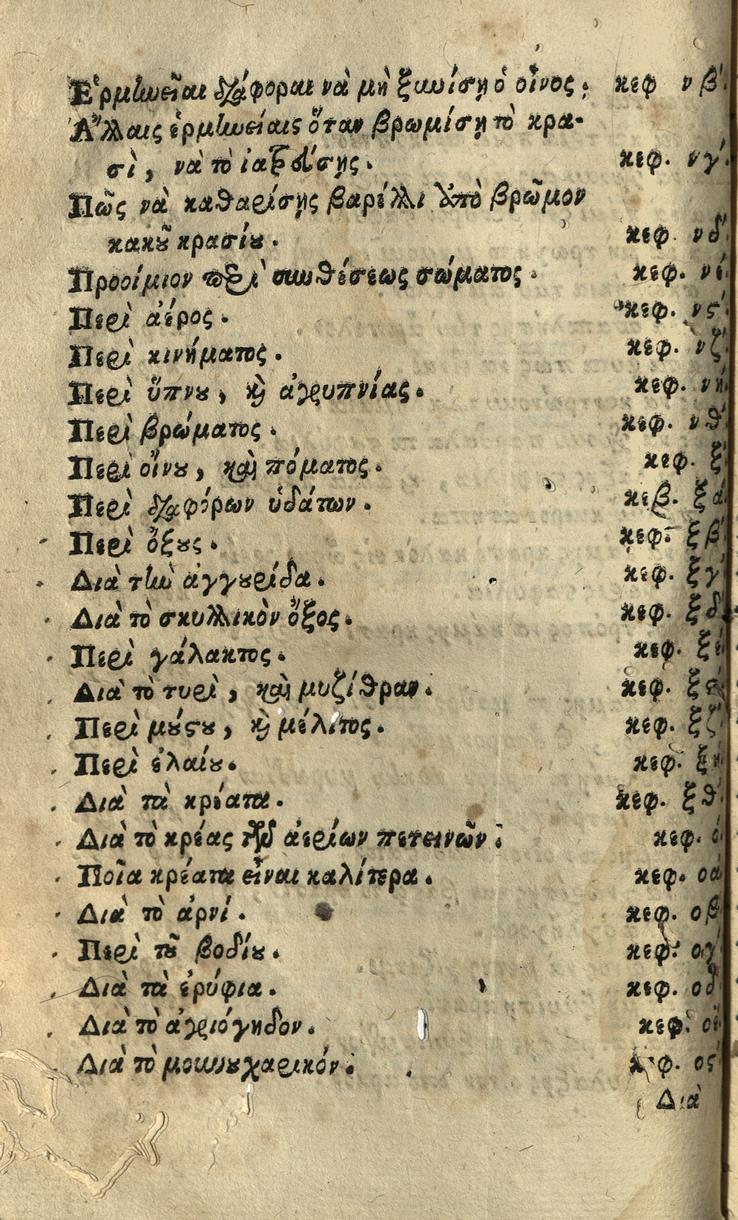 Ἑρμηνεῖαι διάφοραι νὰ μὴ ξυνίσῃ ὁ οἶνος. κεφ νβ΄.
Ἄλλαις ἑρμηνείαις ὅταν βρωμίσῃ τὸ κρα-
σὶ, νὰ τὸ ἰαξδίσῃς. κεφ. νγ΄.
Πῶς νὰ καθαρίσῃς βαρέλλι ἀπὸ βρῶμον
κακοῦ κρασίου. κεφ. νδ΄.
Προοίμιον περὶ συνθέσεως σώματος. κεφ. νέ
Περὶ ἀέρος. κεφ. νς΄.
Περὶ κινήματος. κεφ. νζ΄.
Περὶ ὕπνου, καὶ ἀγρυπνίας. κεφ. νή
Περὶ βρώματος. κεφ. νθ΄
Περὶ οἴνου, καὶ πόματος. κεφ. ξ΄
Περὶ διαφόρων ὑδάτων. κεβ. ξά
Περὶ ὄξους. κεφ. ξβ΄
Διὰ τὴν ἀγγουρίδα. κεφ. ξγ΄
Διὰ τὸ σκυλλικὸν ὄξος. κεφ. ξδ΄
Περὶ γάλακτος. κεφ. ξέ
Διὰ τὸ τυρὶ, καὶ μυζίθραν. κεφ. ξς΄
Περὶ μούστου, καὶ μέλιτος. κεφ. ξζ΄
Περὶ ἐλαίου. κεφ. ξή
Διὰ τὰ κρέατα. κεφ. ξθ΄
Διὰ τὸ κρέας τῶν ἀερίων πετεινῶν. κεφ. ό
Ποῖα κρέατα εἶναι καλίτερα. κεφ. οά
Διὰ τὸ ἀρνί. κεφ. οβ΄
Περὶ τοῦ βοδίου. κεφ. ογ΄
Διὰ τὰ ἐρύφια. κεφ. οδ΄
Διὰ τὸ ἀγριόγηδον. κεφ. οέ
Διὰ τὸ μουνουχαρικόν. κεφ. ος΄
Διὰ